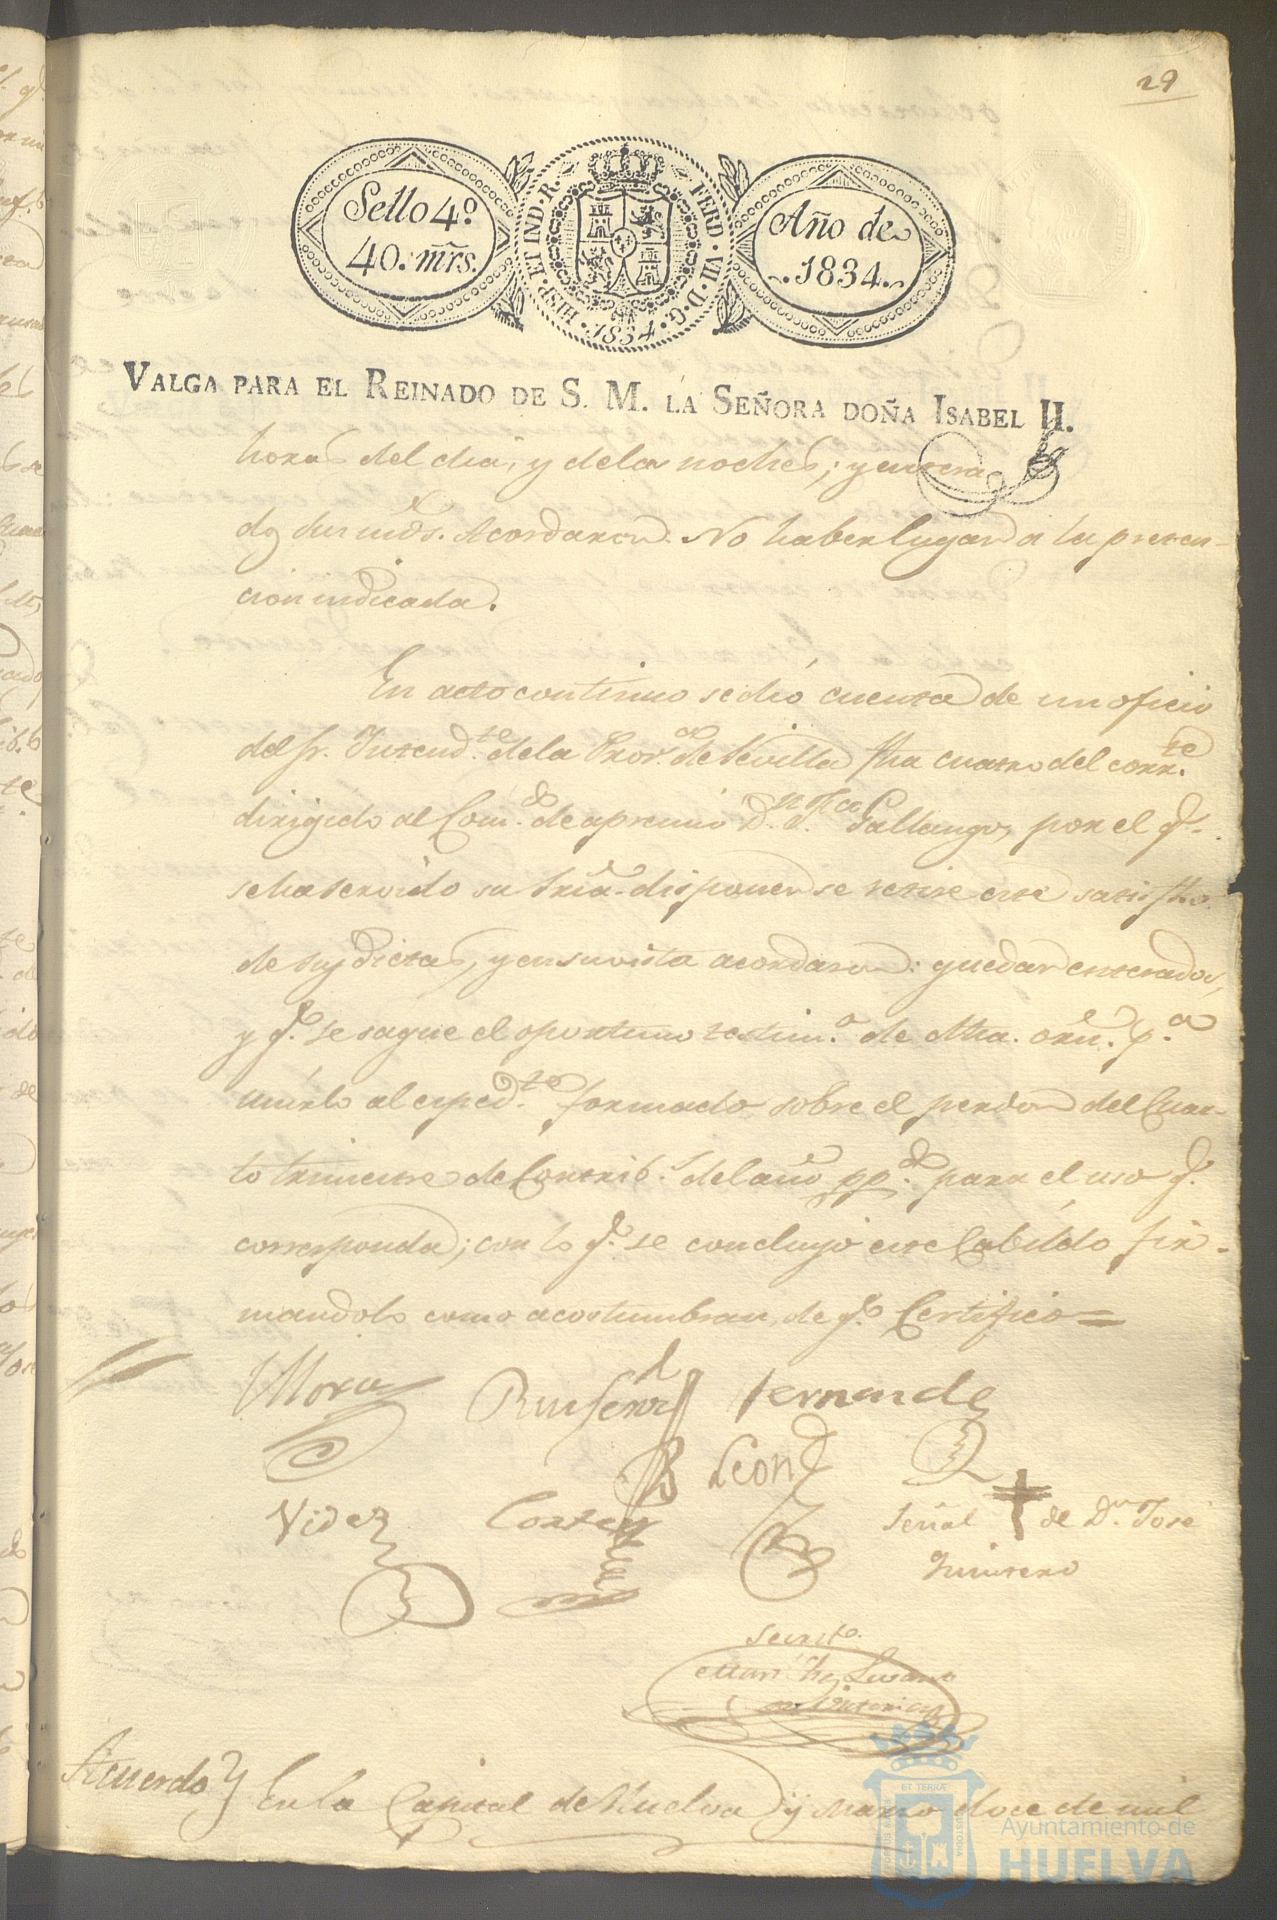 29
Sello 4º
40. mrs.
HISP. ET IND. R. FERD. VII. D. G.
1834
Año de
1834.
VALGA PARA EL REINADO DE S. M. LA SEÑORA DOÑA ISABEL II.
horas del dia, y de las noches; y entera
dos sus mds. Acordaron. No haber lugar a la preten-
cion indicada.
En acto continuo se dió cuenta de un oficio
del Sr. Intendte. de la Prova. de Sevilla fha cuatro del corrte.
dirigido al Comdo. de apremio Dn. Gallangos, por el q.
se ha servido su Sria. disponer se retire este satisfho.
de sus dietas, y en su vista acordaron: quedar enterados,
y q. se saque el oportuno testimo. de dha. orn. pa.
unirlo al expedte. formado sobre el perdon del Cuar-
to trimestre de Contribs. del año pp.do para el uso q.
corresponda; con lo q. se concluyó este Cabildo fir-
mandolo como acostumbran, de q. Certifico=
Mora Fernandz
León
Videz Cortes Señal de Dn. José
Quintero
Secreto.
Acuerdo En la Capital de Huelva y Marzo doce de mil
ET TERRÆ
CUSTODIA
Ayuntamiento de
HUELVA